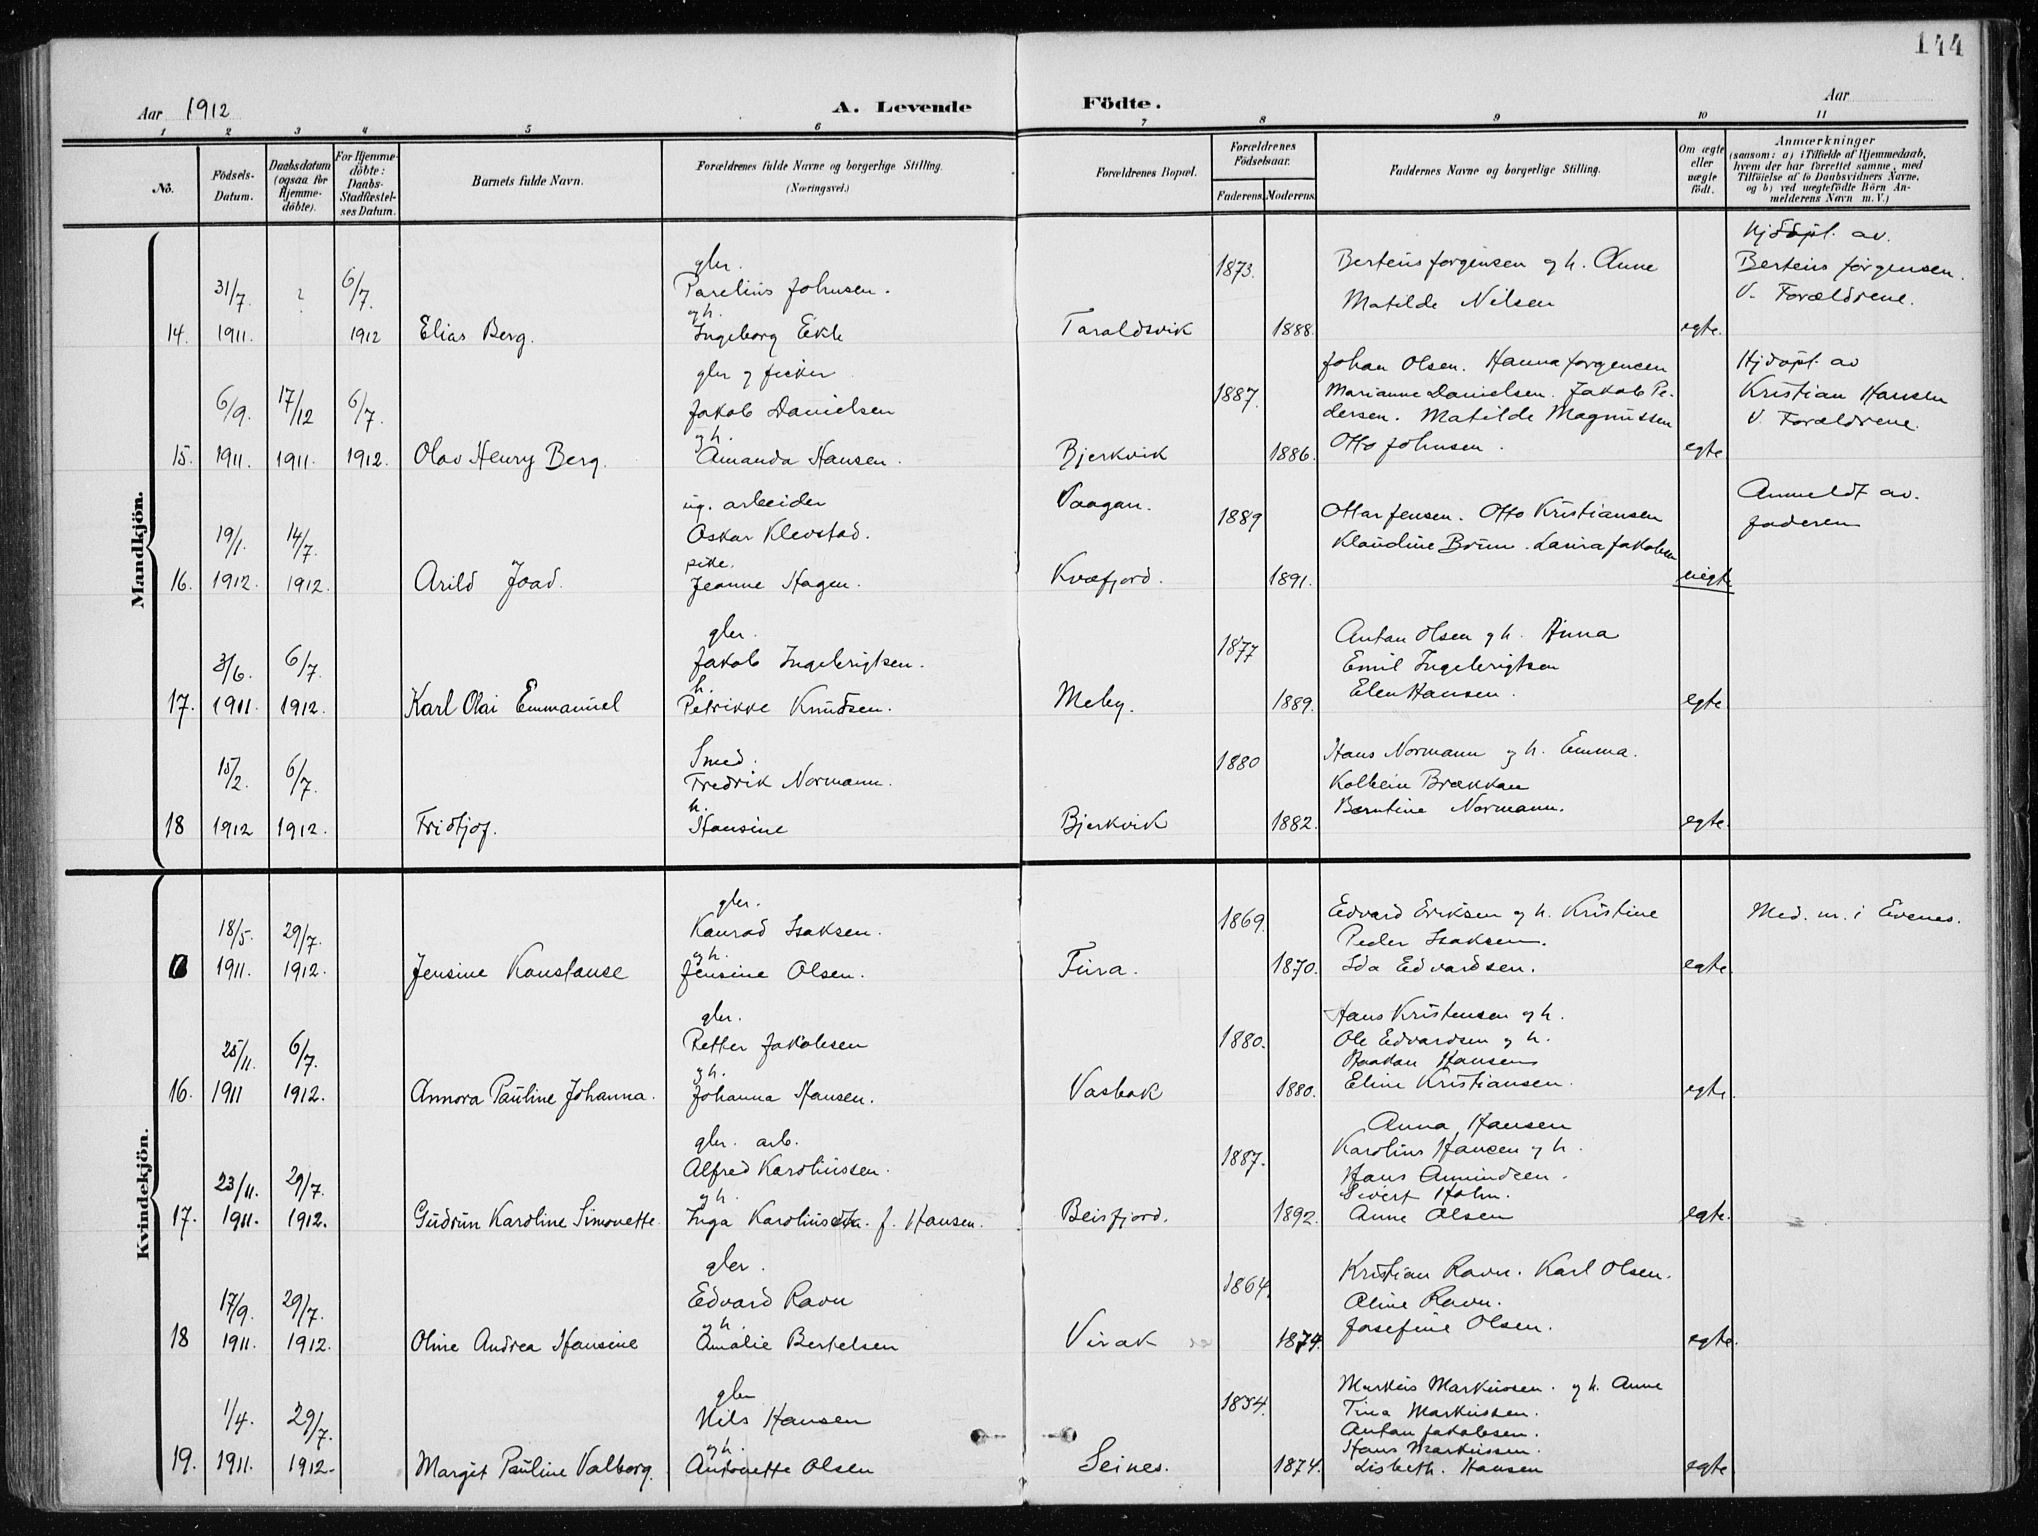 144
Aar 1912
A. Levende Födte.
Aar
1 2 3 4 5 6 7 8 9 10 11
No.
Födsels-Datum.
Daabsdatum (ogsaa for Hjemme-döbte).
For Hjemme-döbte: Daabs-Stadfæstel-ses Datum.
Barnets fulde Navn.
Forældrenes fulde Navne og borgerlige Stilling. (Næringsvei.)
Forældrenes Bopæl.
Forældrenes Födselsaar.
Faderens. Moderens.
Faddernes Navne og borgerlige Stilling.
Om ægte eller uægte födt.
Anmærkninger (saasom: a) i Tilfælde af Hjemmedaab, hvem der har forrettet samme, med Tilföielse af to Daabsvidners Navne, og b) ved uægtefödte Börn An-melderens Navn m. V.)
Mandkjön.
14. 31/7. 1911. ? 6/7. 1912 Elias Berg.
gbr.
Parelius Johnsen.
og h.
Ingeborg
Taraldsvik 1873. 1888.
Berteus Jorgensen og h. Anne
Matilde Nilsen
egte.
Hjdöpt. av.
Berteus Jörgensen.
V. Forældrene.
15. 6/9. 1911. 17/12 1911. 6/7. 1912. Olav Henry Berg.
gbr og fisker
Jakob Danielsen
og h.
Amanda Hansen.
Bjerkvik 1887. 1886.
Johan Olsen. Hanna Jorgencen
Marianne Danielsen. Jakob Pe-
dersen. Matilde Magnussen
Otto Johnsen.
egte
Hjdöpt. av
Kristian Hansen
V. Forældrene.
16. 19/1. 1912. 14/7. 1912. Arild Joad.
ug. arbeider
Oskar Klevstad.
pike.
Jeanne Hagen.
Vaagan.
Kvæfjord. 1889 1891.
Ottar Jensen. Otto Kristiansen
Klaudine Brun. Laura Jakobsen
uegte
Anmeldt av.
faderen
17. 3/6. 1911. 6/7. 1912. Karl Olai Emmanuel
gbr.
Jakob Ingebrigtsen.
h.
Petrikke Knudsen.
Meby. 1877 1889.
Anton Olsen og h. Anna
Emil Ingebrigtsen
Elen Hansen.
egte
18 15/2. 1912 6/7. 1912. Fridtjof.
Smed.
Fredrik Normann.
h.
Hansine
Bjerkvik 1880 1882.
Hans Normann og h. Emma.
Kolbein Brækkan
Berntine Normann.
egte.
Kvindekjön.
18/5. 1911. 29/7. 1912. Jensine Konstanse
gbr.
Konrad Isaksen.
og h.
Jensine Olsen.
Fura. 1869. 1870.
Edvard Eriksen og h. Kristine
Peder Isaksen.
Ida Edvardsen.
egte.
Med. m. i Evenes.
16. 25/11. 1911 6/7. 1912. Annora Pauline Johanna.
gbr.
Petter Jakobsen
og h.
Johanna Hansen.
Vasbak 1880. 1880.
Hans Kristensen og h.
Ole Edvardsen og h.
Haakan Hansen
Eline Kristiansen.
egte.
17. 23/11. 1911. 29/7. 1912. Gudrun Karoline Simonette.
gbr. arb.
Alfred Karoliussen.
og h.
Inga f. Hansen.
Beisfjord. 1887. 1892.
Anna Hansen
Karolius Hansen og h.
Hans Amundsen.
Sivert Holm.
Anne Olsen
egte.
18 17/9. 1911. 29/7. 1912. Oline Andrea Hansine
gbr.
Edvard Ravn
og h.
Amalie Bertelsen
Virak 1864. 1874.
Kristian Ravn. Karl Olsen.
Aline Ravn.
Josefine Olsen.
egte.
19. 1/4. 1911. 29/7. 1912. Margit Pauline Valborg.
gbr
Nils Hansen
og h.
Antonette Olsen
Seines. 1874.
Markus Markussen. og h. Anne
Tina Markussen.
Anton Jakobsen.
Hans Markussen.
Lisbeth. Hansen
egte.